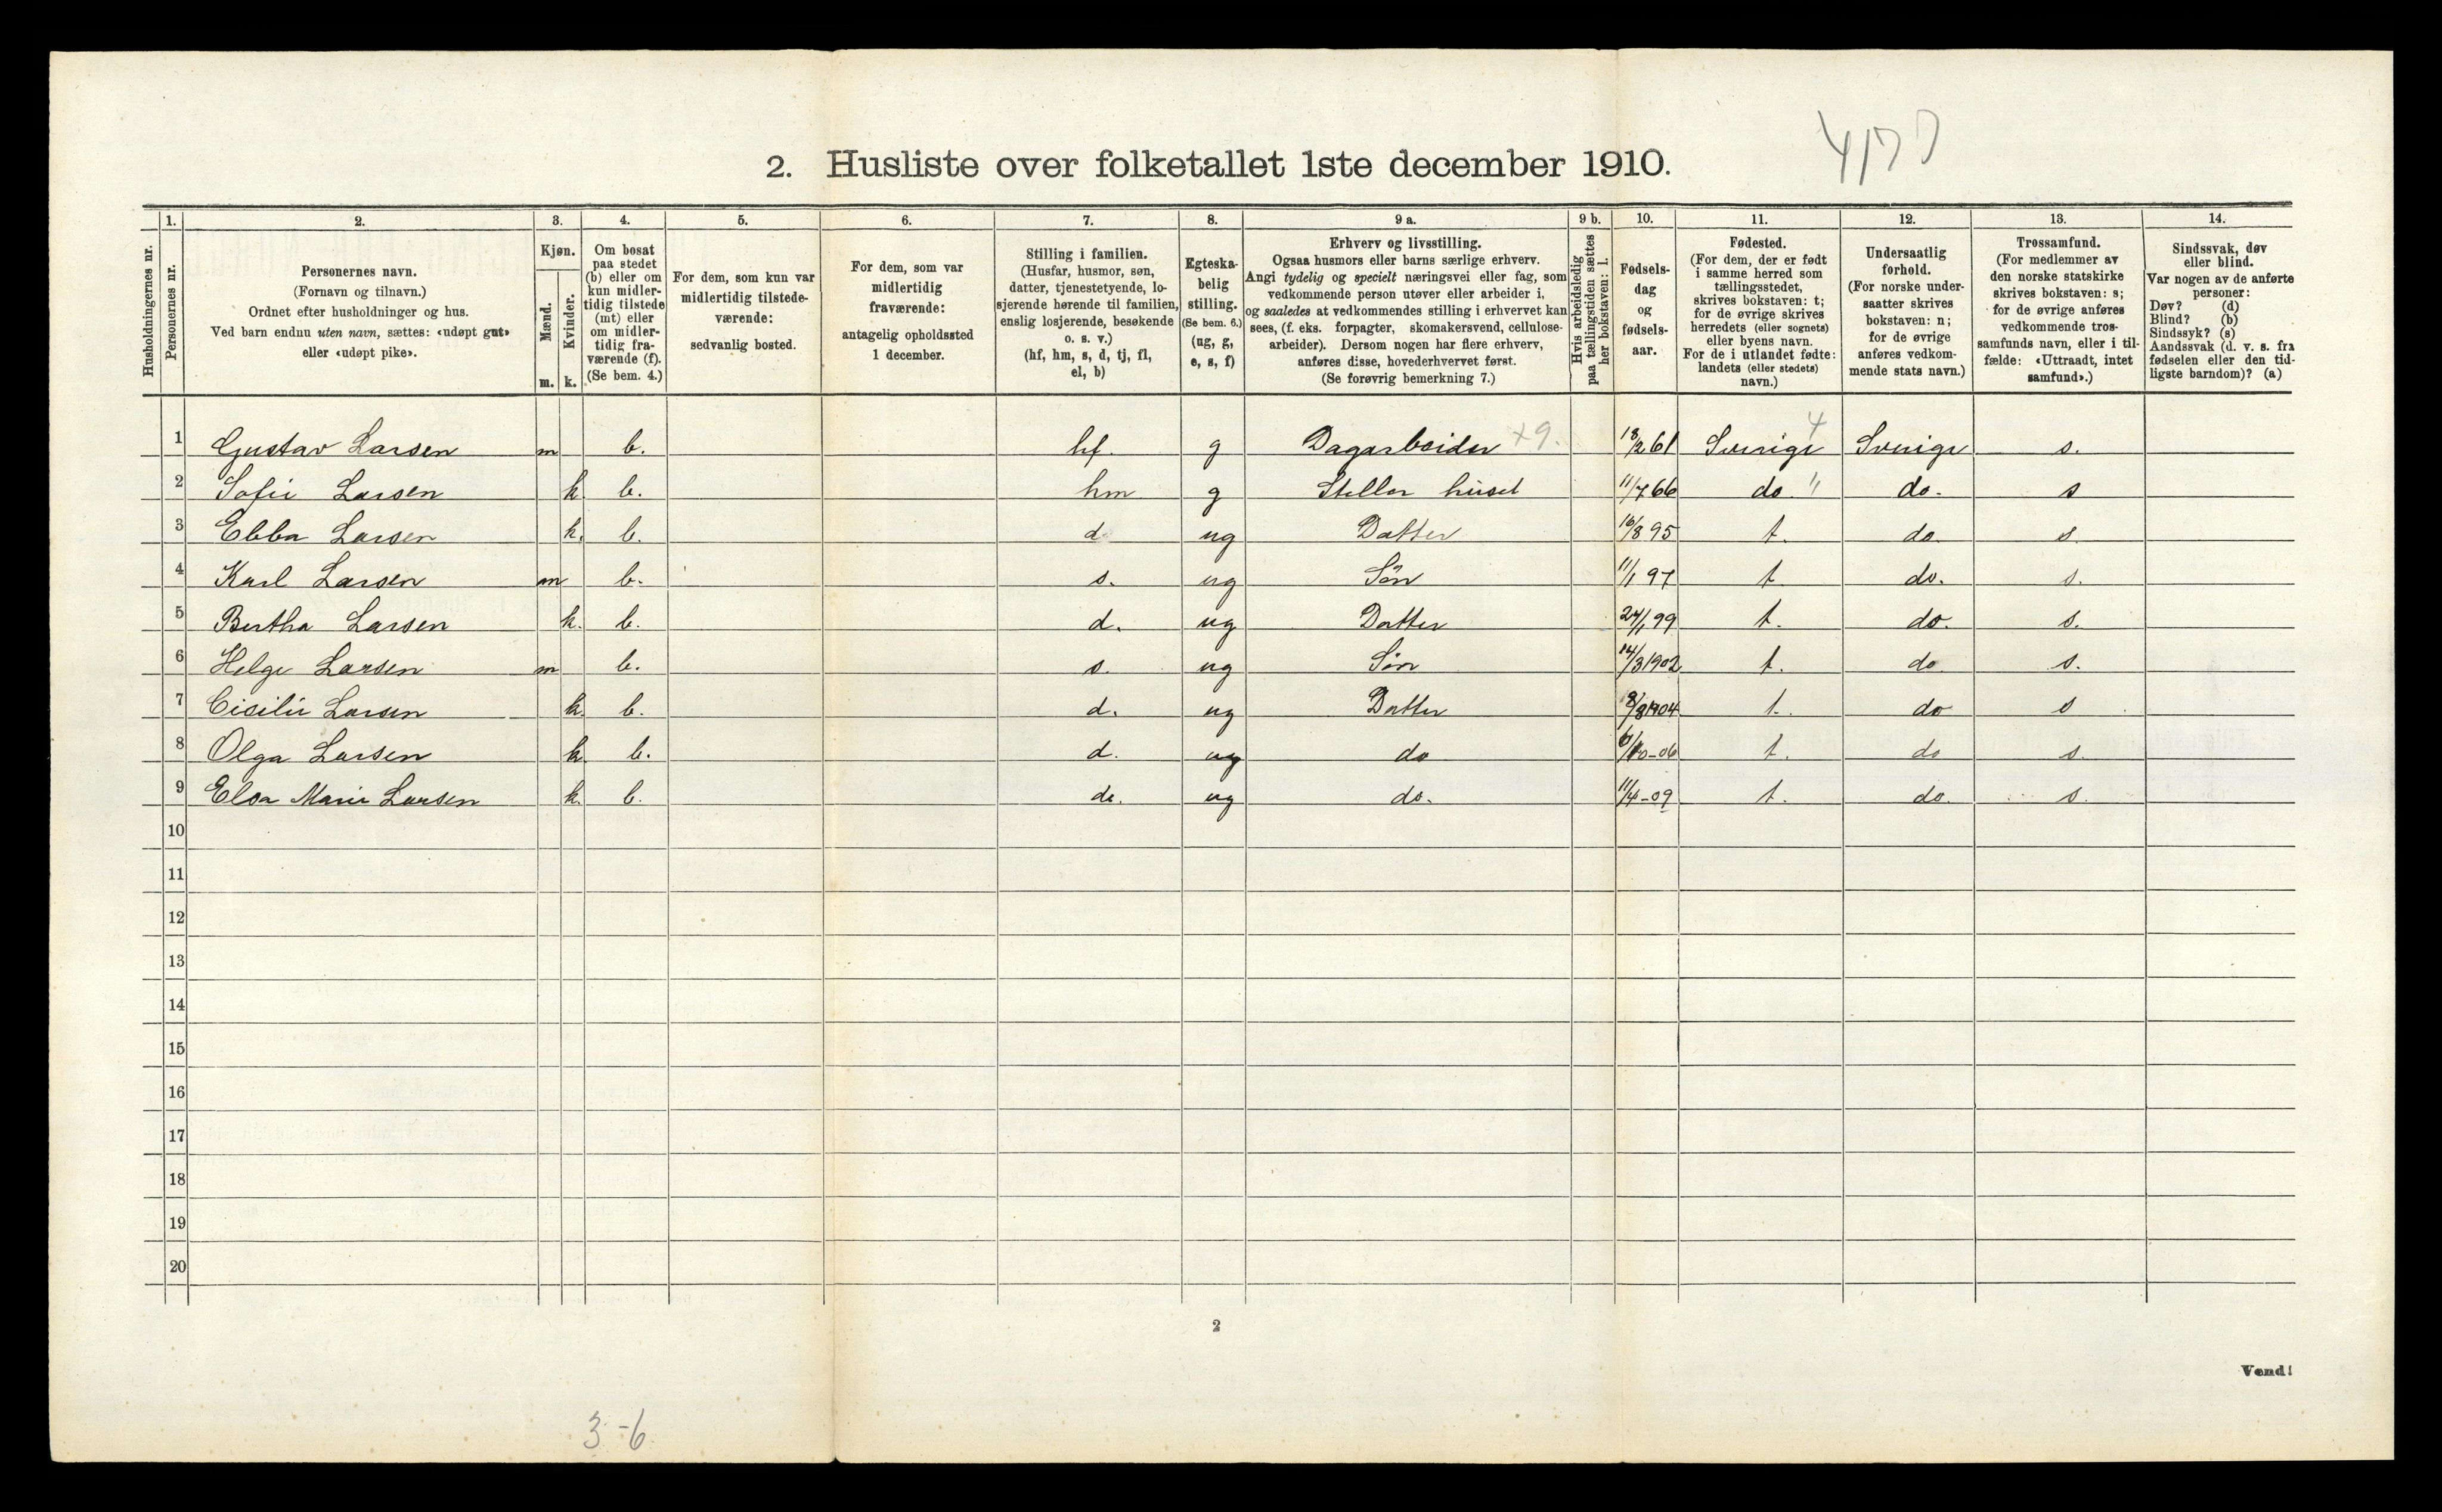 4177
2. Husliste over folketallet 1ste december 1910.
Husholdningernes nr.
1.
Personernes nr.
2.
Personernes navn.
(Fornavn og tilnavn.)
Ordnet efter husholdninger og hus.
Ved barn endnu uten navn, sættes: «udøpt gut»
eller «udøpt pike».
3.
Kjøn.
Mænd.
Kvinder.
m. k.
4.
Om bosat
paa stedet
(b) eller om
kun midler-
tidig tilstede
(mt) eller
om midler-
tidig fra-
værende (f).
(Se bem. 4.)
5.
For dem, som kun var
midlertidig tilstede-
værende:
sedvanlig bosted.
6.
For dem, som var
midlertidig
fraværende:
antagelig opholdssted
1 december.
7.
Stilling i familien.
(Husfar, husmor, søn,
datter, tjenestetyende, lo-
sjerende hørende til familien,
enslig losjerende, besøkende
o. s. v.)
(hf, hm, s, d, tj, fl,
el, b)
8.
Egteska-
belig
stilling.
(Se bem. 6.)
(ug, g,
e, s, f)
9 a.
Erhverv og livsstilling.
Ogsaa husmors eller barns særlige erhverv.
Angi tydelig og specielt næringsvei eller fag, som
vedkommende person utøver eller arbeider i,
og saaledes at vedkommendes stilling i erhvervet kan
sees, (f. eks. forpagter, skomakersvend, cellulose-
arbeider). Dersom nogen har flere erhverv,
anføres disse, hovederhvervet først.
(Se forøvrig bemerkning 7.)
9 b.
Hvis arbeidsledig
paa tællingstiden sættes
her bokstaven: l.
10.
Fødsels-
dag
og
fødsels-
aar.
11.
Fødested.
(For dem, der er født
i samme herred som
tællingsstedet,
skrives bokstaven: t;
for de øvrige skrives
herredets (eller sognets)
eller byens navn.
For de i utlandet fødte:
landets (eller stedets)
navn.)
12.
Undersaatlig
forhold.
(For norske under-
saatter skrives
bokstaven: n;
for de øvrige
anføres vedkom-
mende stats navn.)
13.
Trossamfund.
(For medlemmer av
den norske statskirke
skrives bokstaven: s;
for de øvrige anføres
vedkommende tros-
samfunds navn, eller i til-
fælde: «Uttraadt, intet
samfund».)
14.
Sindssvak, døv
eller blind.
Var nogen av de anførte
personer:
Døv? (d)
Blind? (b)
Sindssyk? (s)
Aandssvak (d. v. s. fra
fødselen eller den tid-
ligste barndom)? (a)
1 Gustav Larsen m b. hf. g Dagarbeider +9. 18/2 61 Sverige 4 Sverige s.
2 Sofie Larsen k b. hm g Steller huset 11/7 66 do. " do. s
3 Ebba Larsen k. b. d. ug Datter 16/8 95 t. do. s.
4 Karl Larsen m b. s. ug Søn 11/1 97 t. do. s.
5 Bertha Larsen k. b. d. ug Datter 24/1 99 t. do. s.
6 Helge Larsen m b. s. ug Søn 14/3 1902 t. do s.
7 Cicilie Larsen k. b. d. ug Datter 1904 t. do s
8 Olga Larsen k. b. d. ug do 6/10-06 t. do s.
9 Elsa Marie Larsen k. b. do. ug do. 11/4-09 t. do. s.
10
11
12
13
14
15
16
17
18
19
20
2
Vend!
3-6